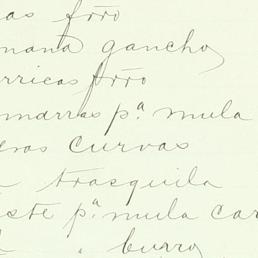 as frro
mana gancho
rricas frro
marras p.ª mula
eras curvas
trasquila
iste p.ª mula car
" burro